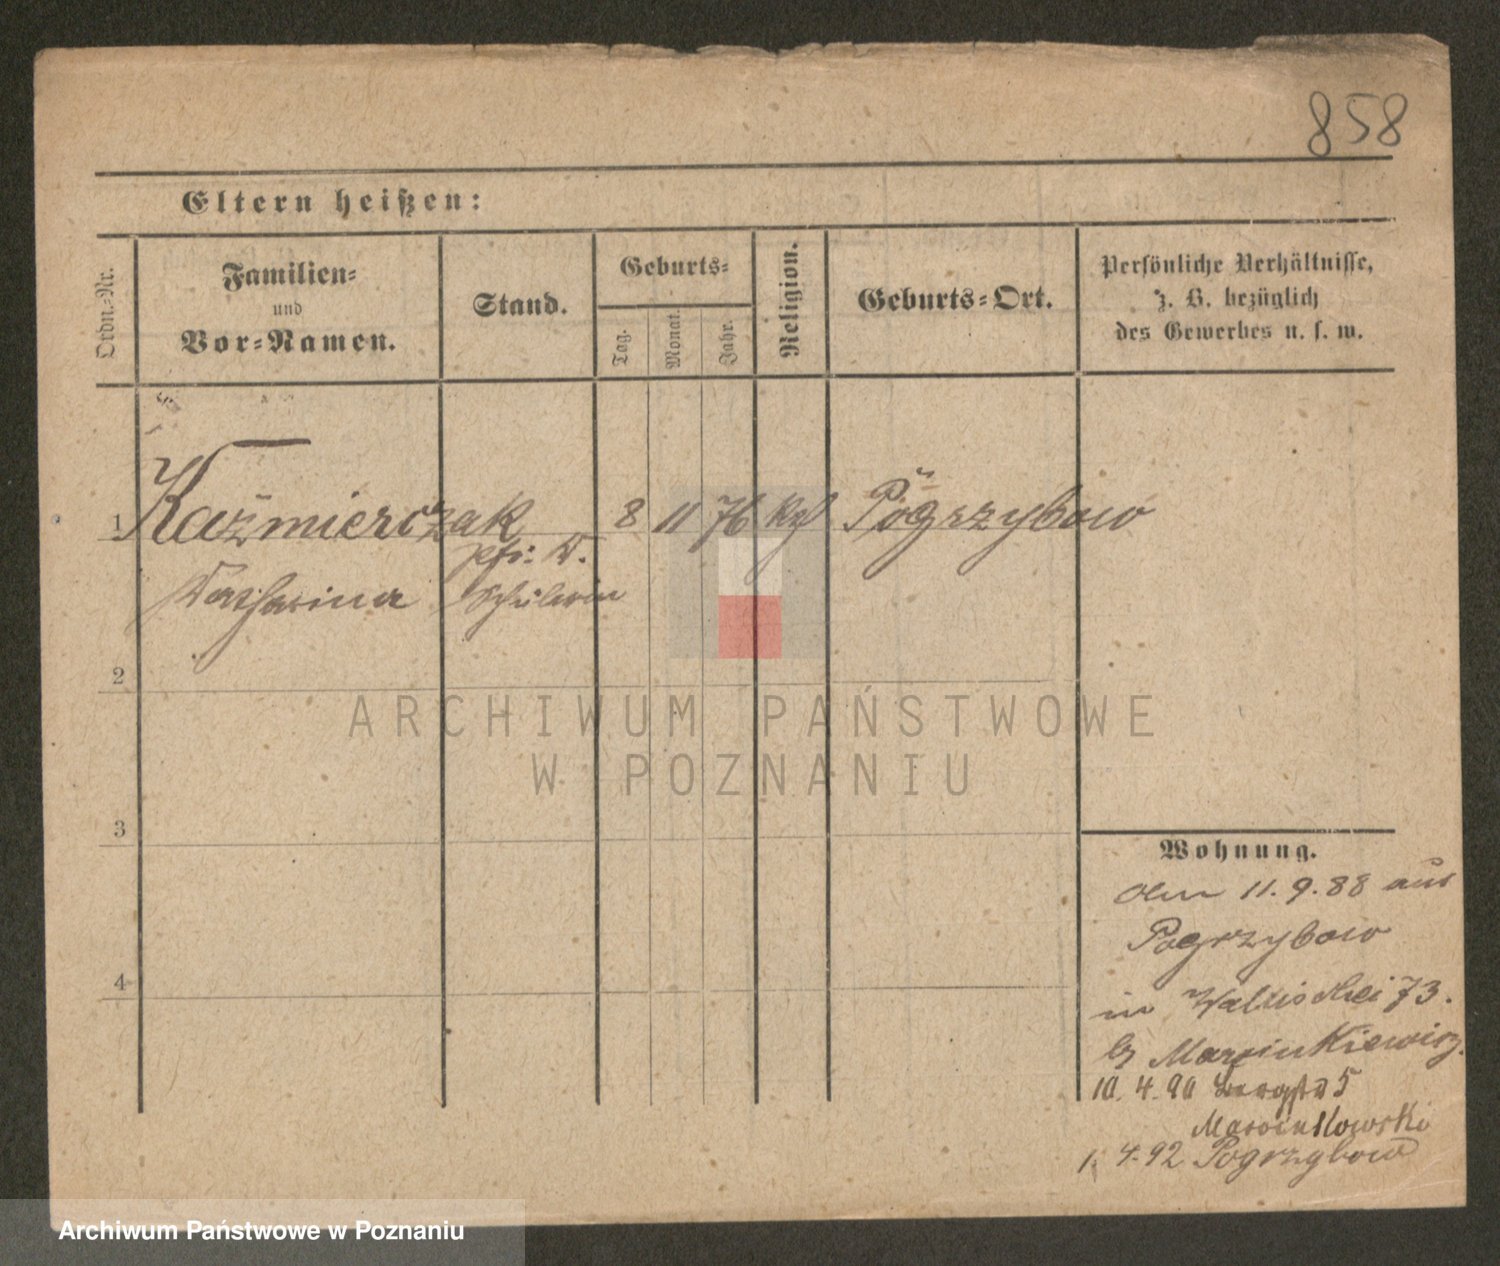 858
Eltern heißen:
Ordn.-Nr.
Familien-
und
Vor-Namen.
Stand.
Geburts-
Tag.
Monat.
Jahr.
Religion.
Geburts-Ort.
Persönliche Verhältnisse,
z. B. bezüglich
des Gewerbes u. s. w.
1 Kaźmierczak 8 11 76 Pogrzybow
Katharina
Schülerin
2
3
4
ARCHIWUM PAŃSTWOWE
W POZNANIU
Wohnung.
11.9.88 aus
Pogrzybow
in Wallischei 73.
b Marcinkiewicz.
10. 4. 90 5
Marcinkowski
1. 4. 92 Pogrzybow
Archiwum Państwowe w Poznaniu